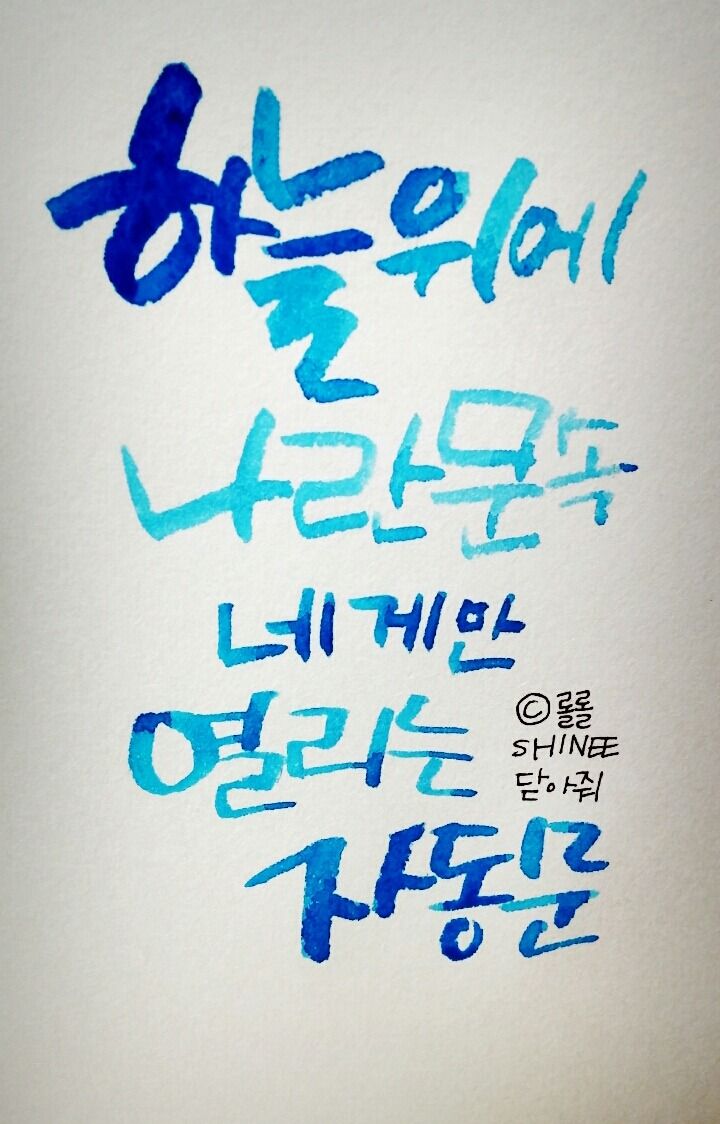 하늘위에
나란문속
네게만
열리는
ⓒ롤롤
SHINEE
닫아줘
자동문